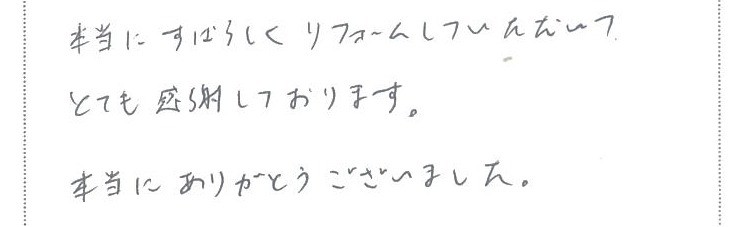 本当に すばらしく リフォームしていただいて
とても 感謝しております。
本当に ありがとうございました。